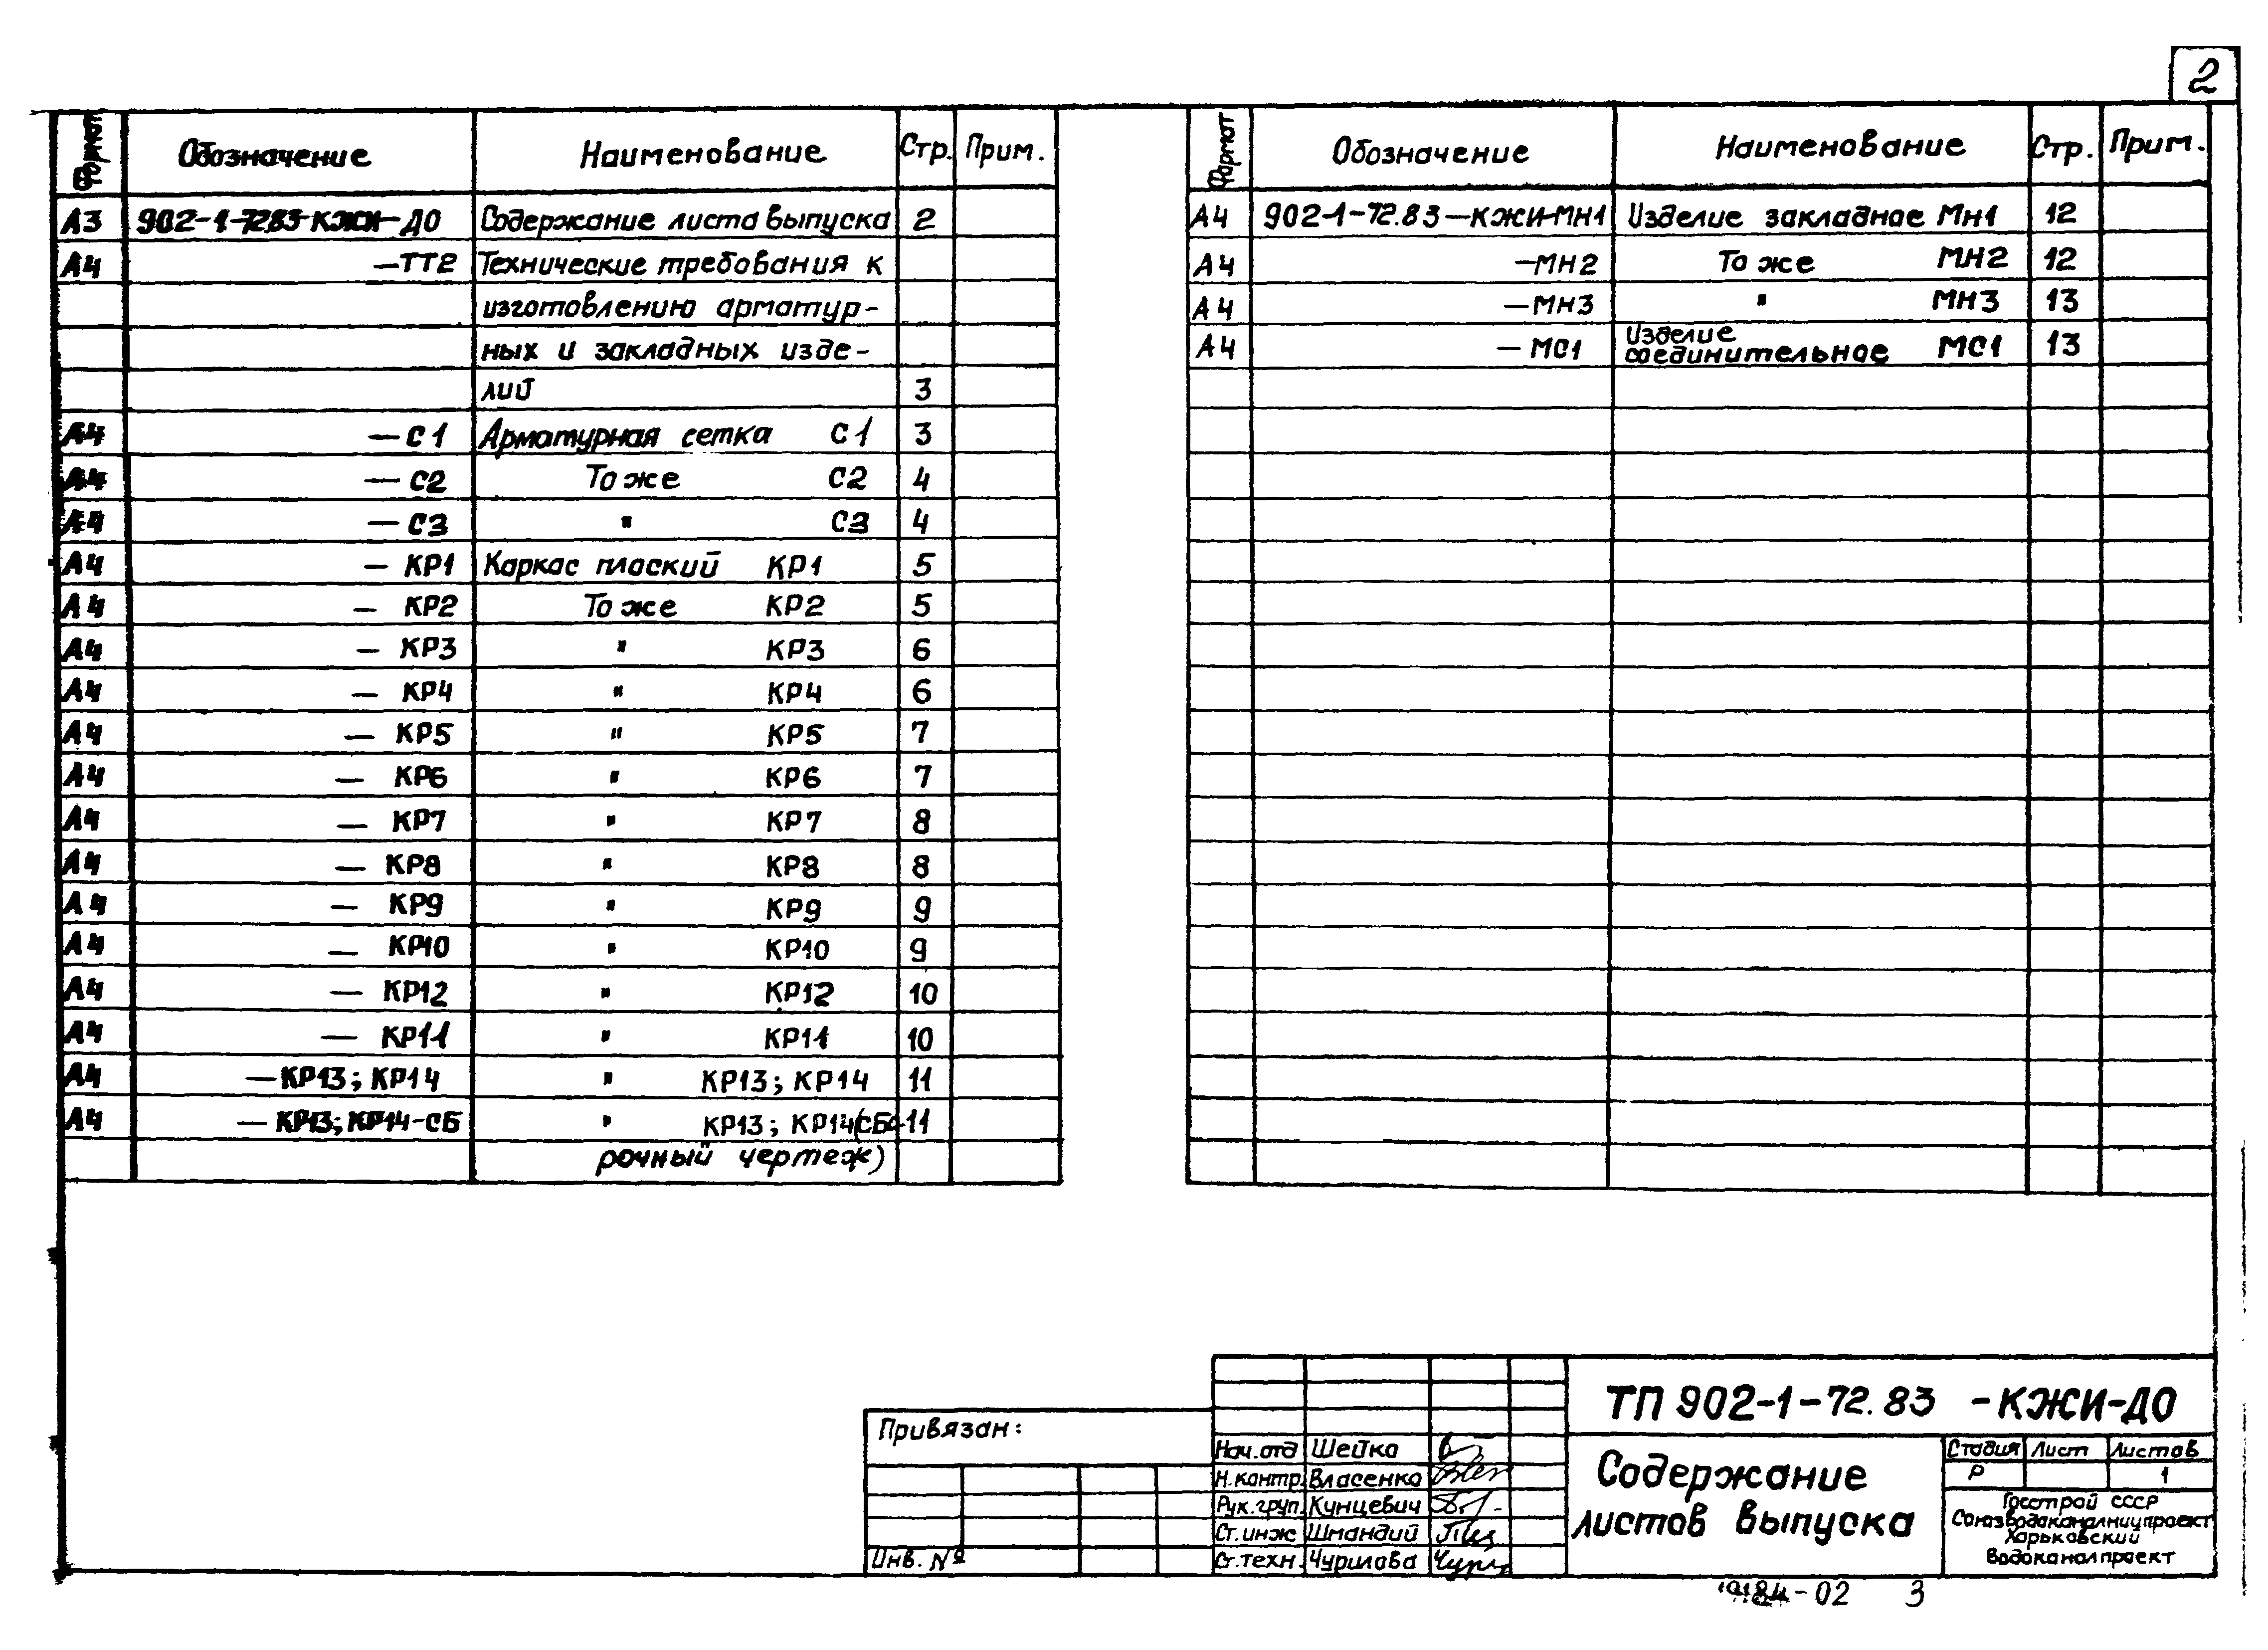 2
Формат Обозначение Наименование Стр. Прим.
А3 902-1-72.83-КЖИ-ДО Содержание листа выпуска 2
А4 -ТТ2 Технические требования к
изготовлению арматур-
ных и закладных изде-
лий 3
А4 -С1 Арматурная сетка С1 3
А4 -С2 То же С2 4
А4 -С3 " С3 4
А4 - КР1 Каркас плоский КР1 5
А4 - КР2 То же КР2 5
А4 - КР3 " КР3 6
А4 - КР4 " КР4 6
А4 - КР5 " КР5 7
А4 - КР6 " КР6 7
А4 - КР7 " КР7 8
А4 - КР8 " КР8 8
А4 - КР9 " КР9 9
А4 - КР10 " КР10 9
А4 - КР12 " КР12 10
А4 - КР11 " КР11 10
А4 -КР13; КР14 " КР13; КР14 11
А4 -КР13; КР14-СБ " КР13; КР14 (сбо- 11
рочный чертеж)
Формат Обозначение Наименование Стр. Прим.
А4 902-1-72.83-КЖИ-МН1 Изделие закладное Мн1 12
А4 -МН2 То же МН2 12
А4 -МН3 " МН3 13
А4 -МС1 Изделие
соединительное МС1 13
Привязан:
Инв. №
Нач.отд Шейко
Н.контр. Власенко
Рук.груп. Кунцевич
Ст.инж Шмандий
Ст.техн. Чурилова
ТП 902-1-72.83 -КЖИ-ДО
Содержание
листов выпуска
Стадия Лист Листов
Р 1
Госстрой СССР
Союзводоканалниипроект
Харьковский
Водоканалпроект
19184-02 3